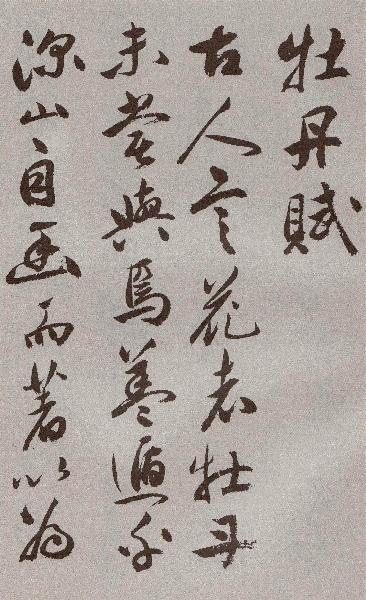 牡丹賦
古人言花者牡丹
未嘗與焉蓋遁於
深山自幽而著以為